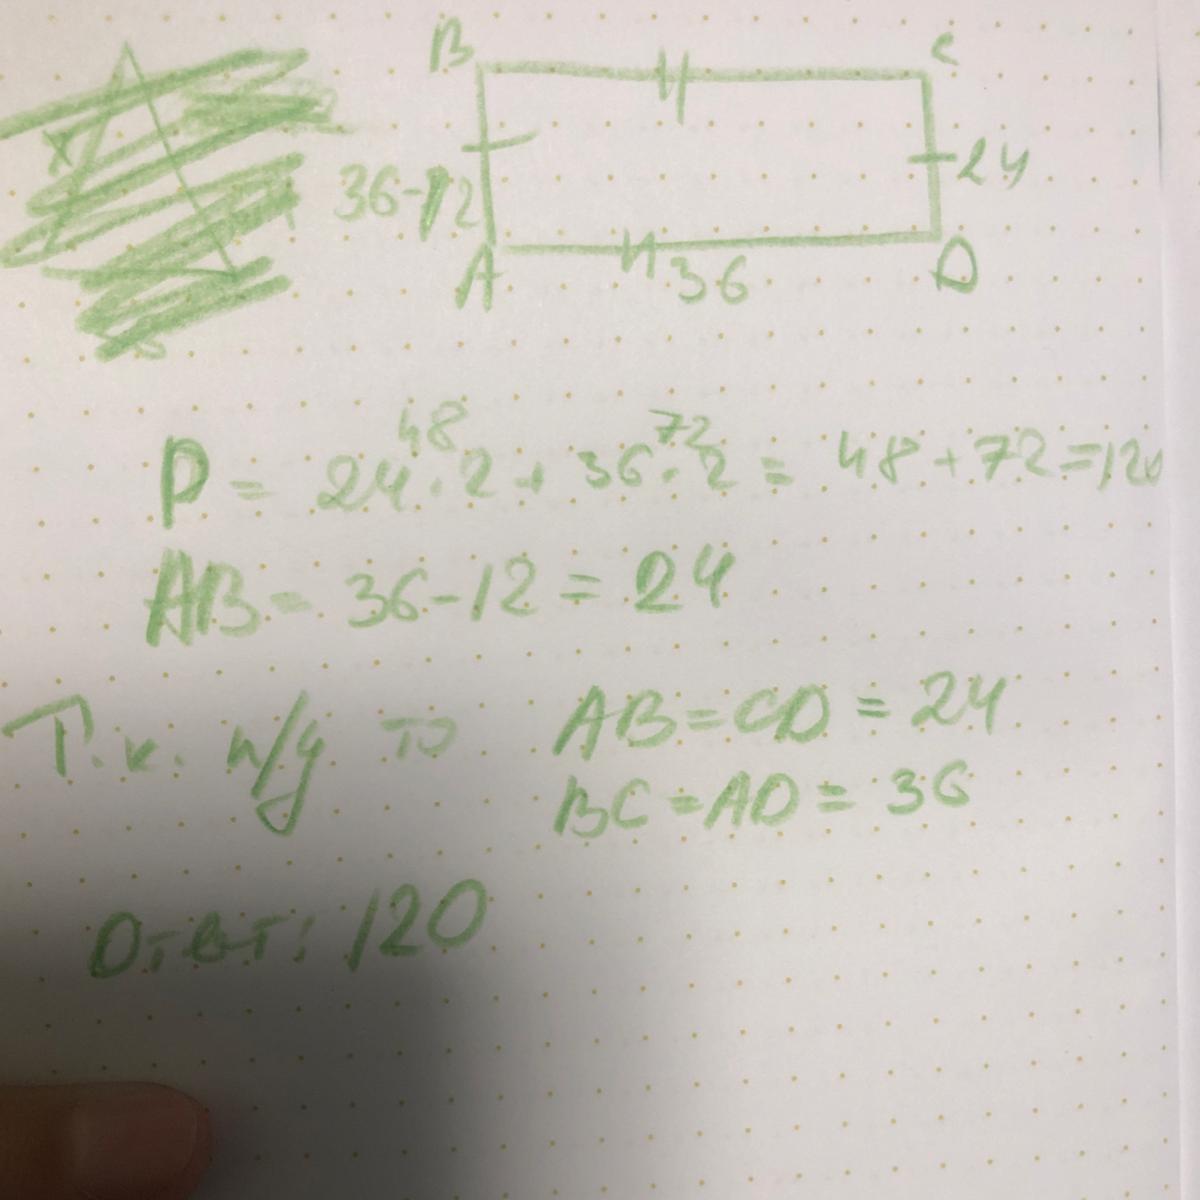 B C
36-12 24
A 36 D
48 72
P = 24·2+36·2 = 48+72=120
AB = 36-12 = 24
Т.к. п/у то AB=CD = 24
BC=AD = 36
Ответ: 120